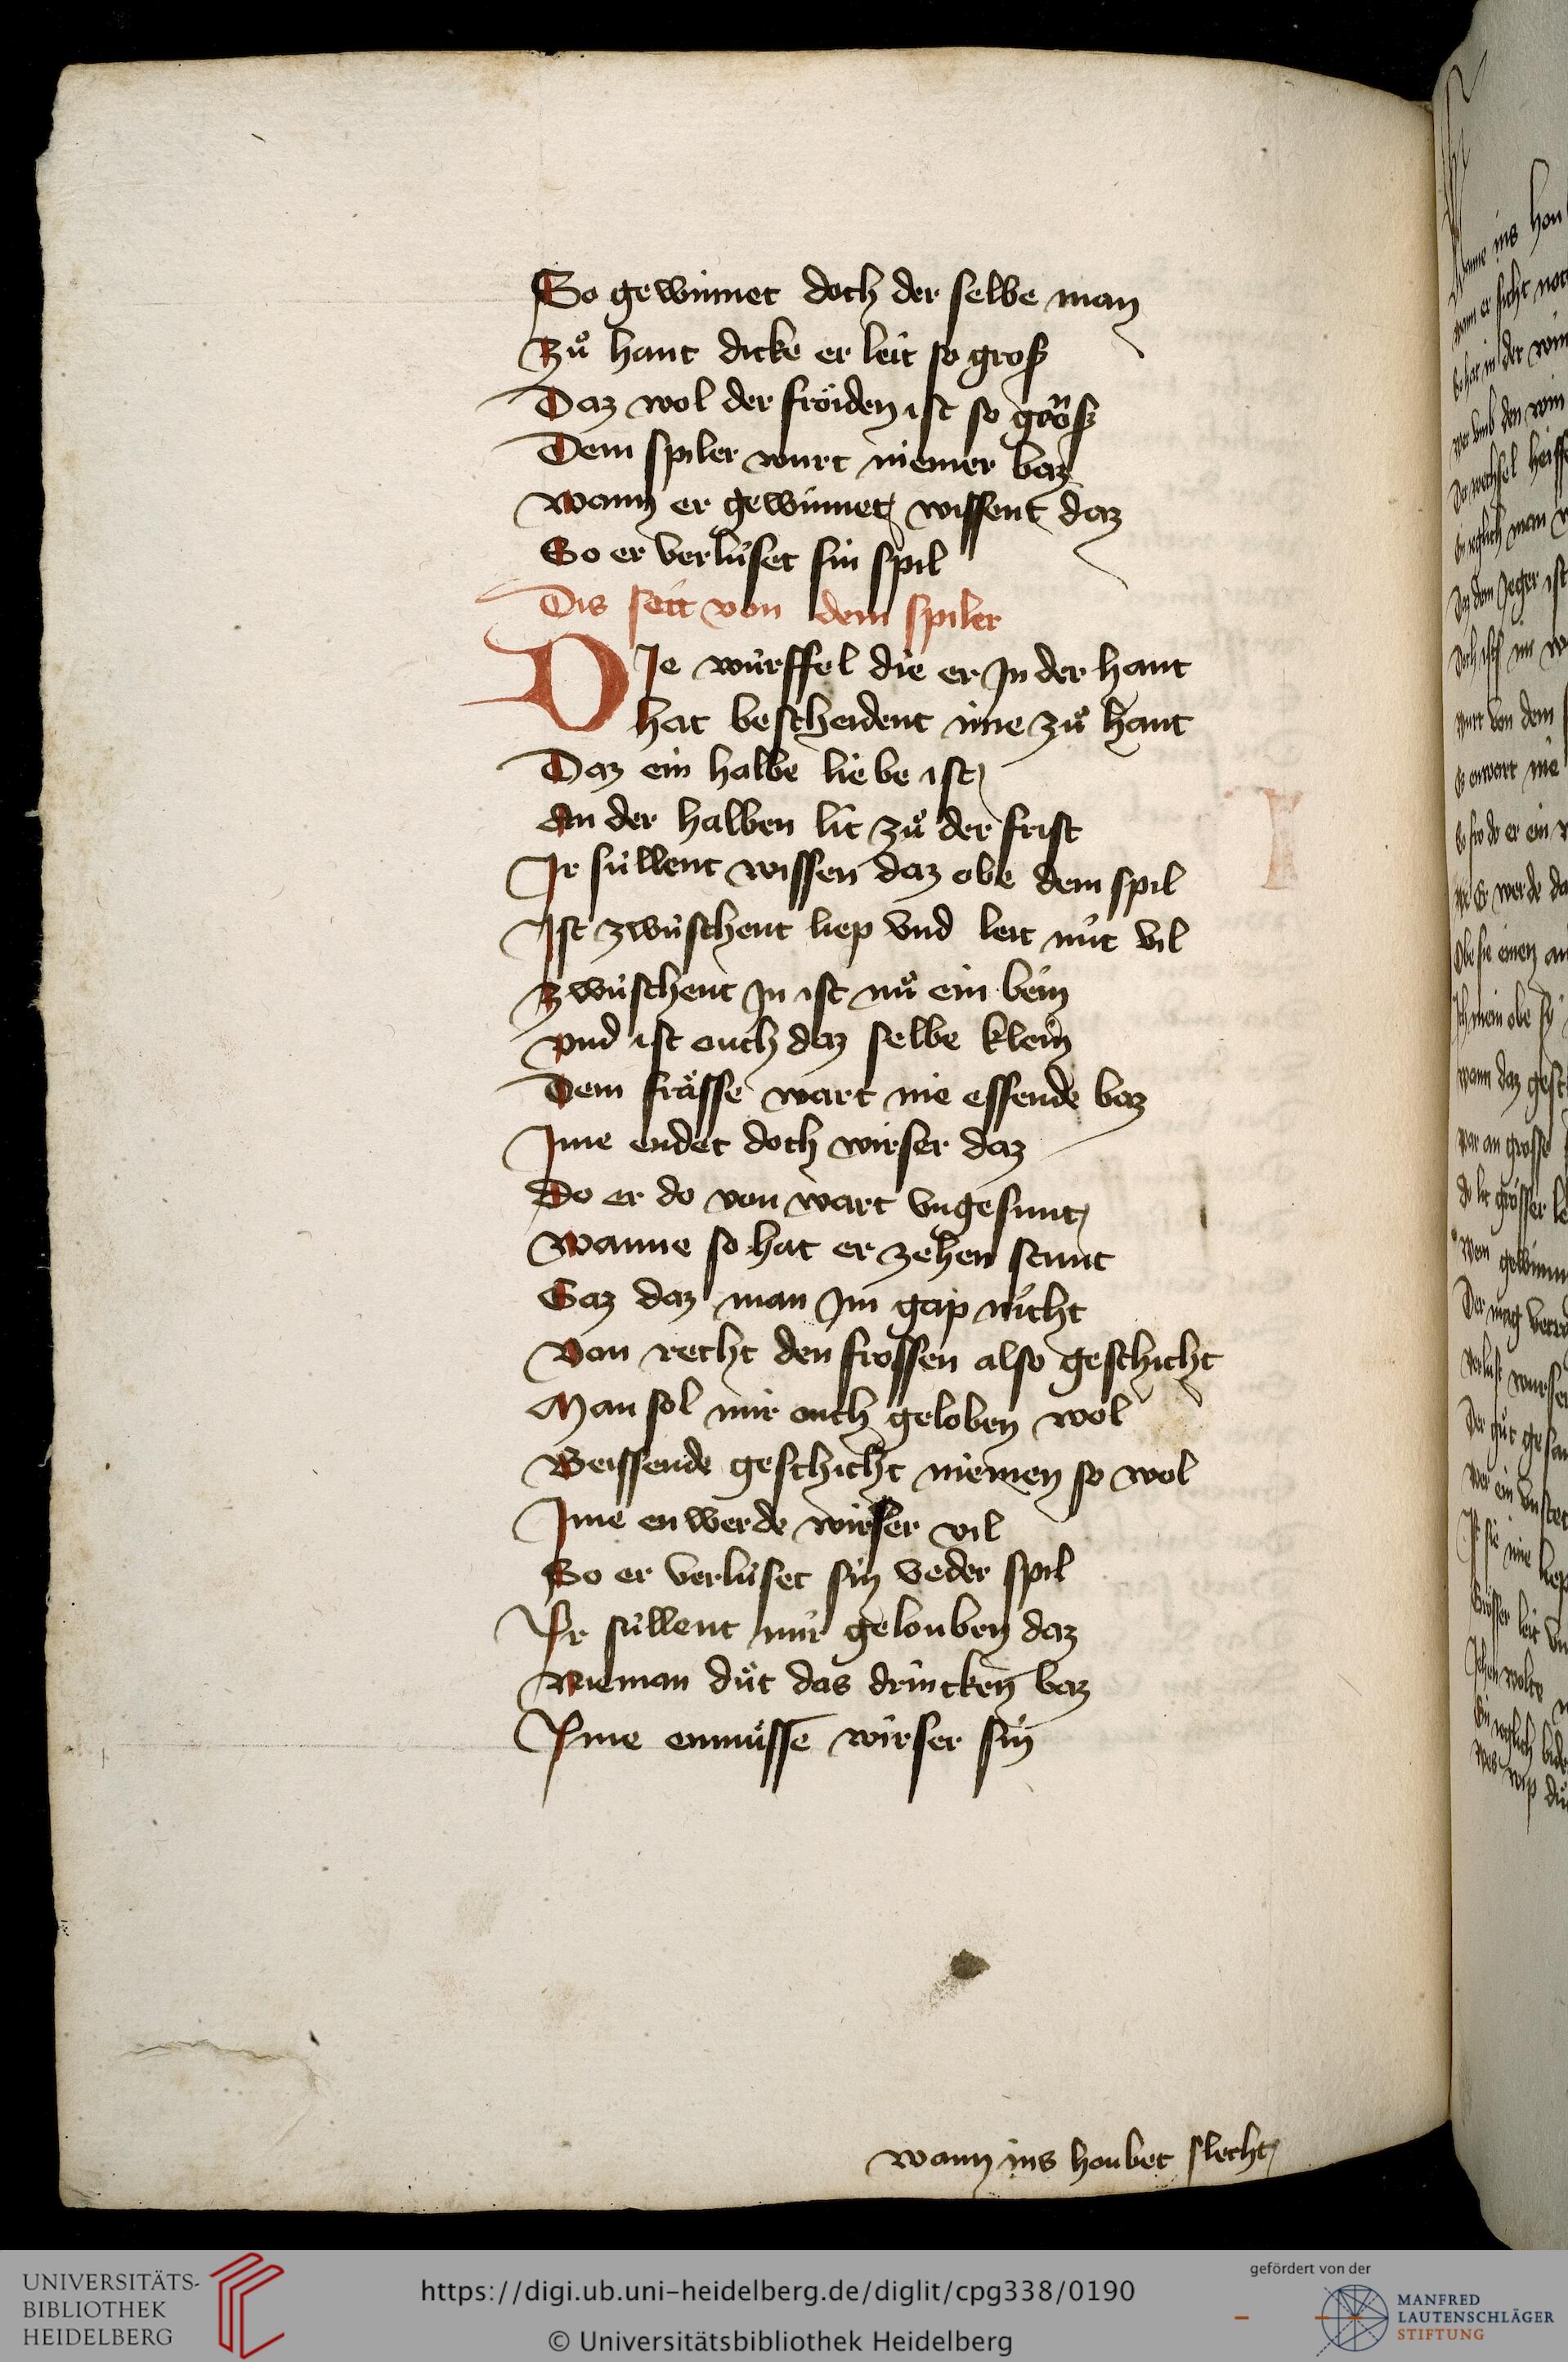 So gewinnet doch der selbe man
Zuͦ hant dicke er leit so groſz
Daz wol der froͤiden ist so grooſz
Dem spiler wurt niemer baz
Wann er gewinnet wissent daz
So er verluͤset sin spil
Dis seit von dem spiler
DJe wuͤrffel die er Jn der hant
hat bescheident ime zuͦ hant
Daz ein halbe liebe ist
An der halben lit zuͦ der frist
Jr suͤllent wissen daz obe dem spil
Jst zwuͤschent liep vnd leit nuͤt vil
Zwuͤschent Jn ist nuͦ ein bein
Vnd ist ouch daz selbe klein
Dem fraͤsse wart nie essende baz
Jme endet doch wirser daz
Do er do von wart vngesunt
Wanne so hat er zehen stunt
Gaz daz man Jm gap nicht
Von recht den frossen also geschicht
Man sol mir ouch geloben wol
Beissende geschicht niemen so wol
Jme en werde wirser vil
So er verluͤset sin veder spil
Jr suͤllent mir gelouben daz
Nieman duͦt das drincken baz
Jme enmuͤsse wirser sin
wann ins houbet slecht
UNIVERSITÄTS-
BIBLIOTHEK
HEIDELBERG
https://digi.ub.uni-heidelberg.de/diglit/cpg338/0190
© Universitätsbibliothek Heidelberg
gefördert von der
MANFRED
LAUTENSCHLÄGER
STIFTUNG